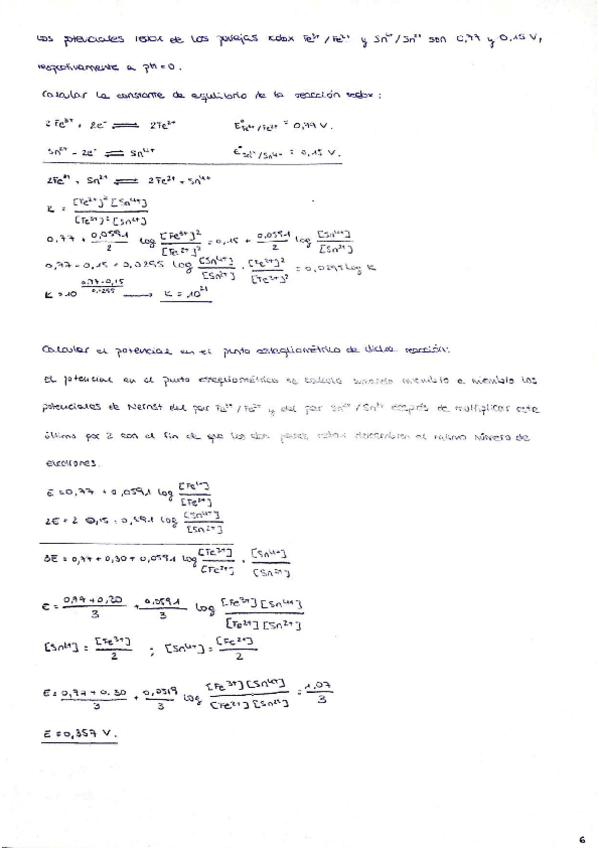 Los potenciales redox de las parejas redox Fe³⁺/Fe²⁺ y Sn⁴⁺/Sn²⁺ son 0,77 y 0,15 V,
respectivamente a pH = 0.
Calcular la constante de equilibrio de la reacción redox:
2Fe³⁺ + 2e⁻ ⇌ 2Fe²⁺ E°Fe³⁺/Fe²⁺ = 0,77 V.
Sn²⁺ - 2e⁻ ⇌ Sn⁴⁺ E°Sn²⁺/Sn⁴⁺ = 0,15 V.
2Fe³⁺ + Sn²⁺ ⇌ 2Fe²⁺ + Sn⁴⁺
K = [Fe²⁺]² [Sn⁴⁺] / [Fe³⁺]² [Sn²⁺]
0,77 + 0,0591/2 log [Fe³⁺]²/[Fe²⁺]² = 0,15 + 0,0591/2 log [Sn⁴⁺]/[Sn²⁺]
0,77 - 0,15 = 0,0295 log [Sn⁴⁺]/[Sn²⁺] · [Fe²⁺]²/[Fe³⁺]² = 0,0295 log K
K = 10^(0,77-0,15/0,0295) → K = 10²¹
Calcular el potencial en el punto estequiométrico de dicha reacción:
El potencial en el punto estequiométrico se calcula sumando miembro a miembro los
potenciales de Nernst del par Fe³⁺/Fe²⁺ y del par Sn⁴⁺/Sn²⁺ después de multiplicar este
último por 2 con el fin de que los dos pares redox intercambien el mismo número de
electrones.
E = 0,77 + 0,0591 log [Fe³⁺]/[Fe²⁺]
2E = 2 · 0,15 + 0,0591 log [Sn⁴⁺]/[Sn²⁺]
3E = 0,77 + 0,30 + 0,0591 log [Fe³⁺]/[Fe²⁺] · [Sn⁴⁺]/[Sn²⁺]
E = 0,77 + 0,30/3 + 0,0591/3 log [Fe³⁺][Sn⁴⁺]/[Fe²⁺][Sn²⁺]
[Sn²⁺] = [Fe³⁺]/2 ; [Sn⁴⁺] = [Fe²⁺]/2
E = 0,77 + 0.30/3 + 0,0519/3 log [Fe³⁺][Sn⁴⁺]/[Fe²⁺][Sn²⁺] = 1,07/3
E = 0,357 V.
6